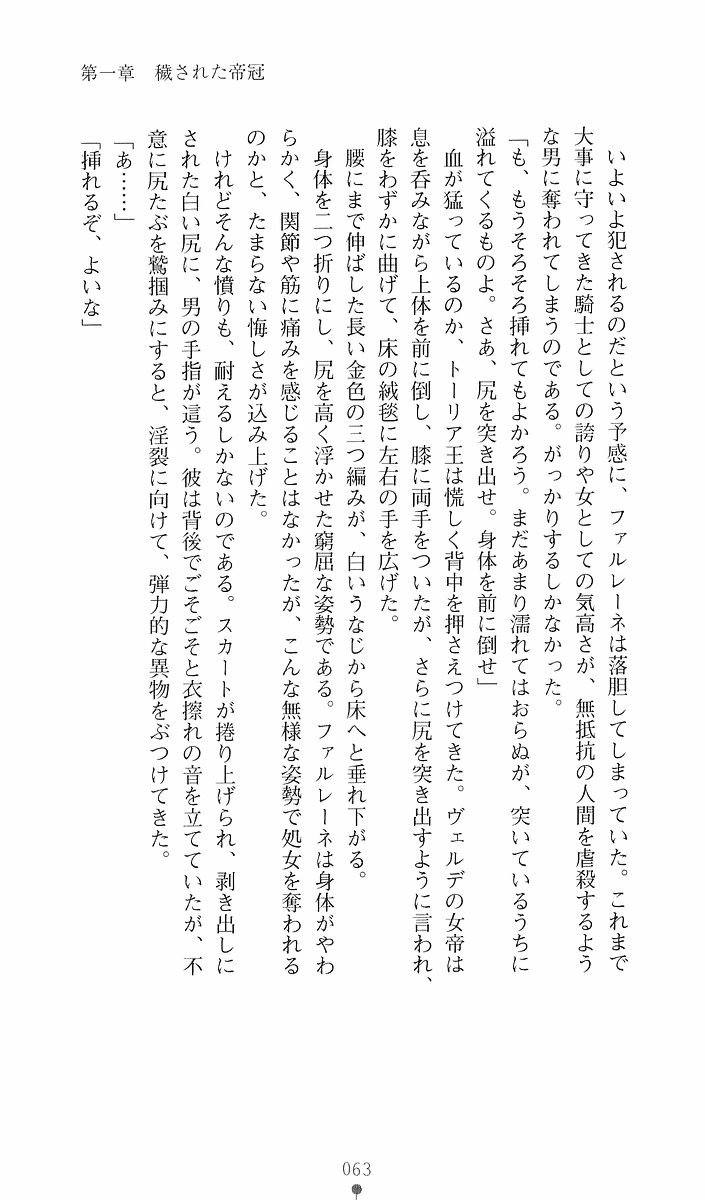 第一章　穢された帝冠
　いよいよ犯されるのだという予感に、ファルレーネは落胆してしまっていた。これまで
大事に守ってきた騎士としての誇りや女としての気高さが、無抵抗の人間を虐殺するよう
な男に奪われてしまうのである。がっかりするしかなかった。
「も、もうそろそろ挿れてもよかろう。まだあまり濡れてはおらぬが、突いているうちに
溢れてくるものよ。さあ、尻を突き出せ。身体を前に倒せ」
　血が猛っているのか、トーリア王は慌しく背中を押さえつけてきた。ヴェルデの女帝は
息を呑みながら上体を前に倒し、膝に両手をついたが、さらに尻を突き出すように言われ、
膝をわずかに曲げて、床の絨毯に左右の手を広げた。
　腰にまで伸ばした長い金色の三つ編みが、白いうなじから床へと垂れ下がる。
　身体を二つ折りにし、尻を高く浮かせた窮屈な姿勢である。ファルレーネは身体がやわ
らかく、関節や筋に痛みを感じることはなかったが、こんな無様な姿勢で処女を奪われる
のかと、たまらない悔しさが込み上げた。
　けれどそんな憤りも、耐えるしかないのである。スカートが捲り上げられ、剥き出しに
された白い尻に、男の手指が這う。彼は背後でごそごそと衣擦れの音を立てていたが、不
意に尻たぶを鷲掴みにすると、淫裂に向けて、弾力的な異物をぶつけてきた。
「あ……」
「挿れるぞ、よいな」
063